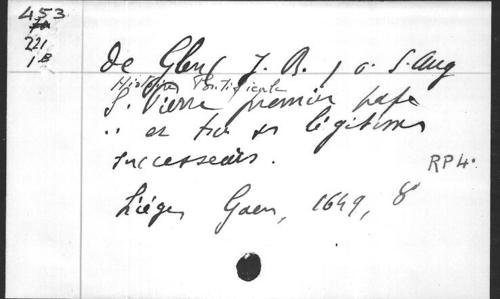 453
221
1B
de Glen (J. B.) o. S. Aug
Histoire Pontificale
S. Pierre premier pape
et ses légitimes
successeurs.
RP4.
Liége, 1649, 8°